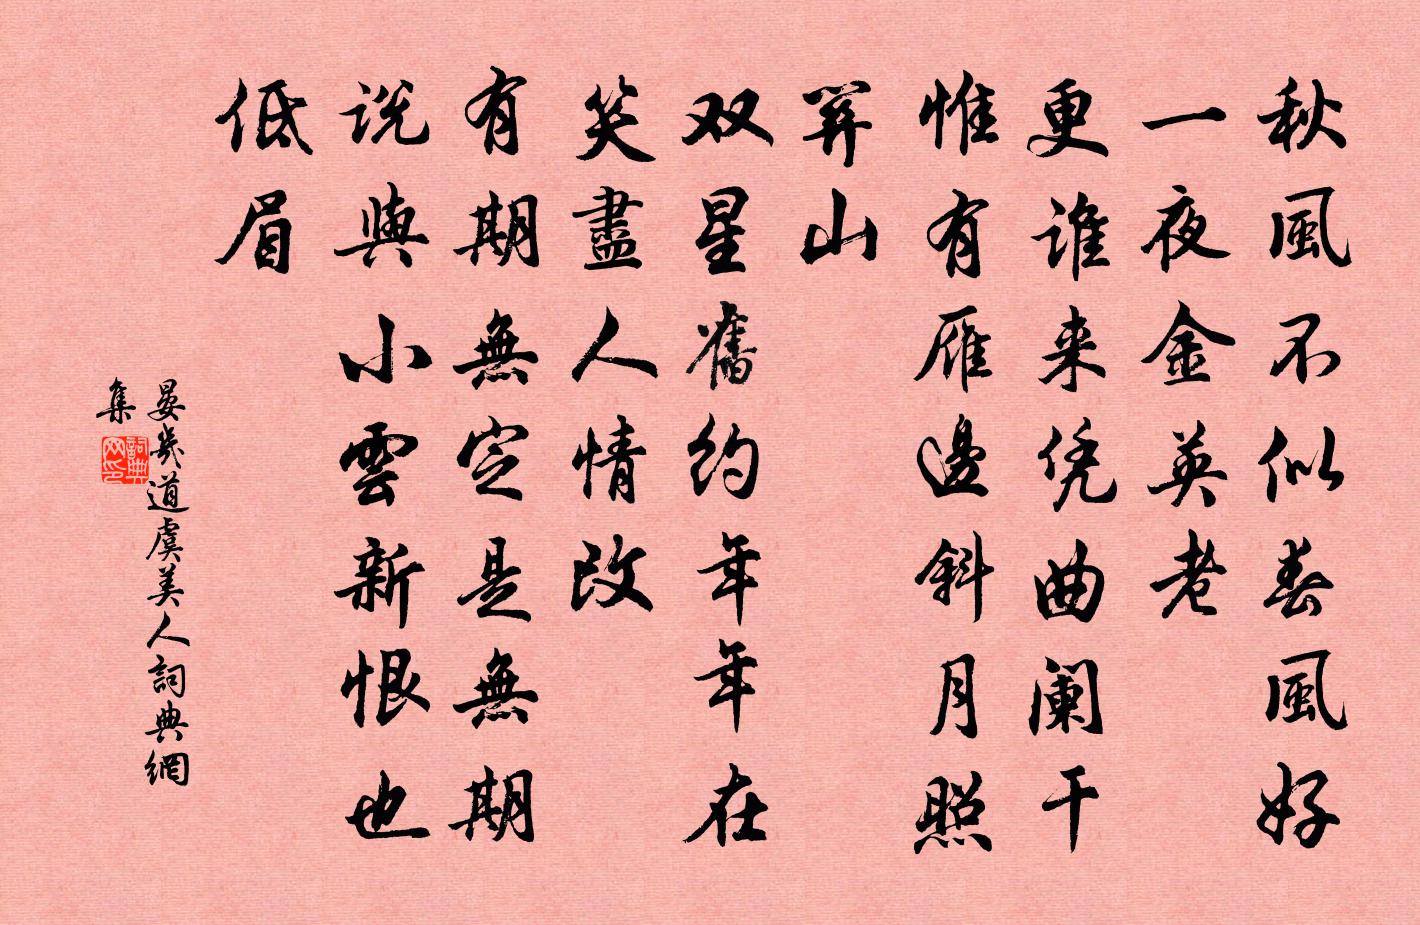 秋風不似春風好
一夜金英老
更谁来凭曲阑干
惟有雁邊斜月照
關山
双星舊约年年在
笑盡人情改
有期無定是無期
说與小雲新恨也
低眉
晏幾道虞美人詞典網
集
詞典
网印